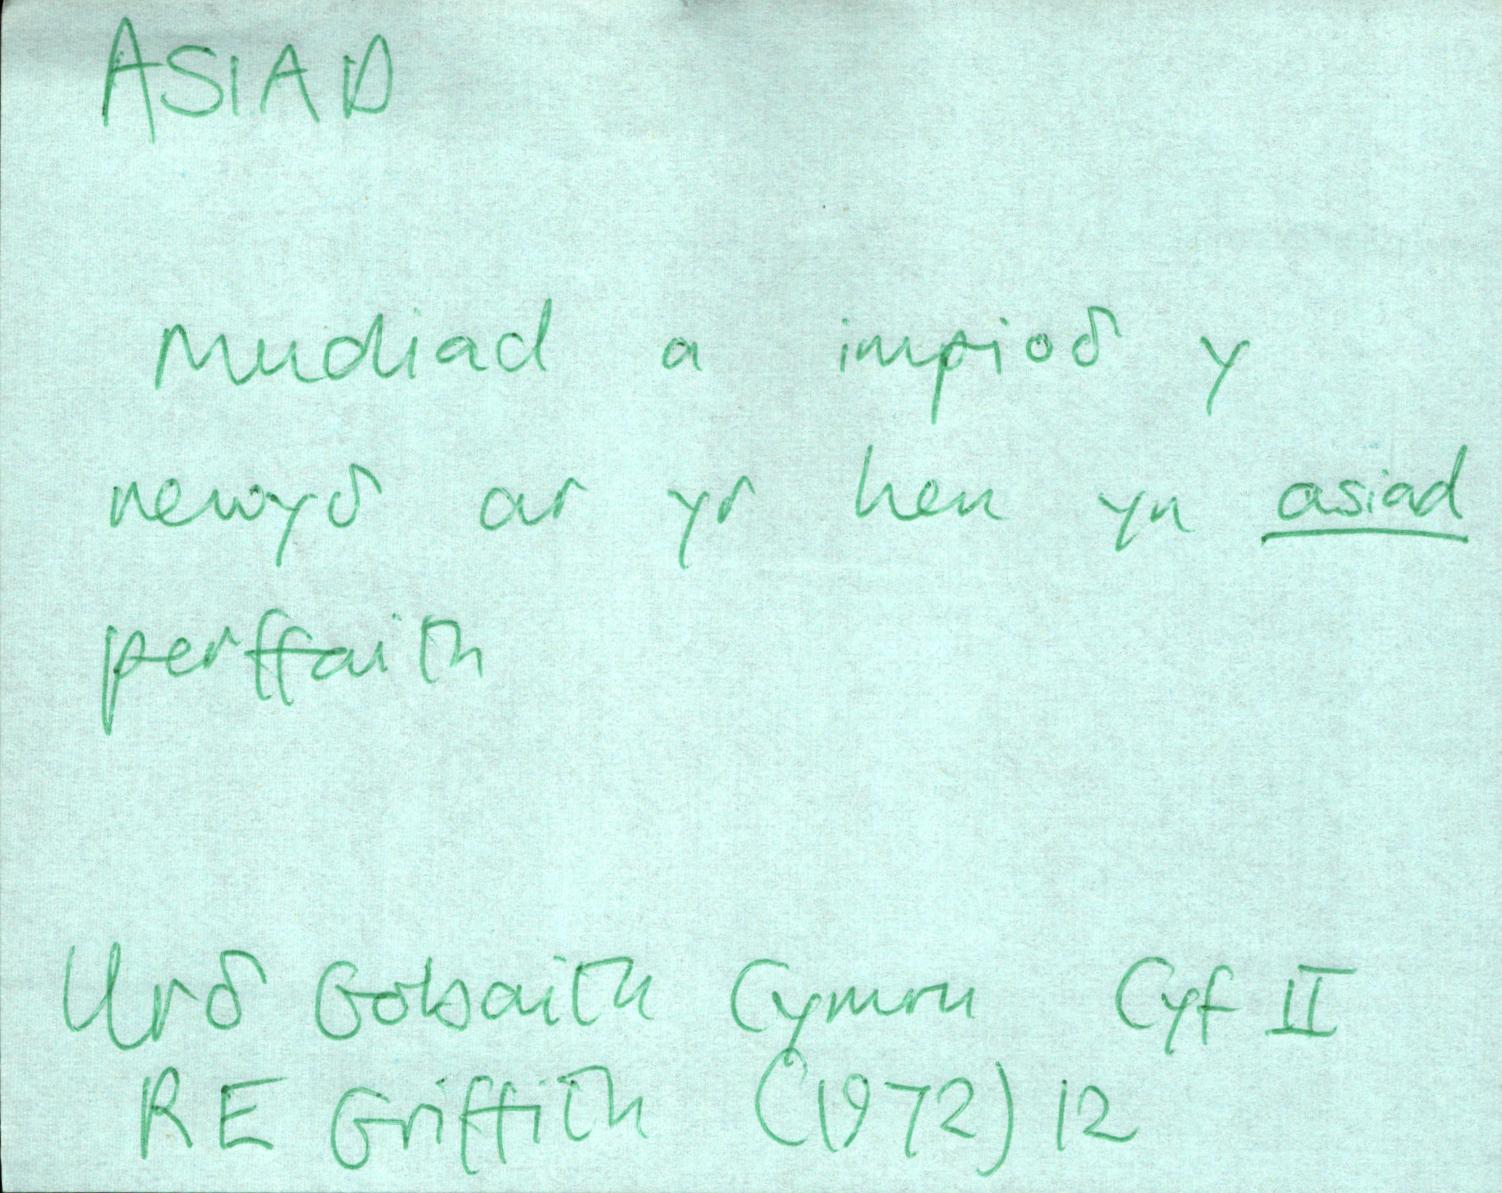 ASIAD
Mudiad a impioδ y
newyδ ar yr hen yn asiad
perffaith
Urδ Gobaith Cymru Cyf II
RE Griffith (1972) 12